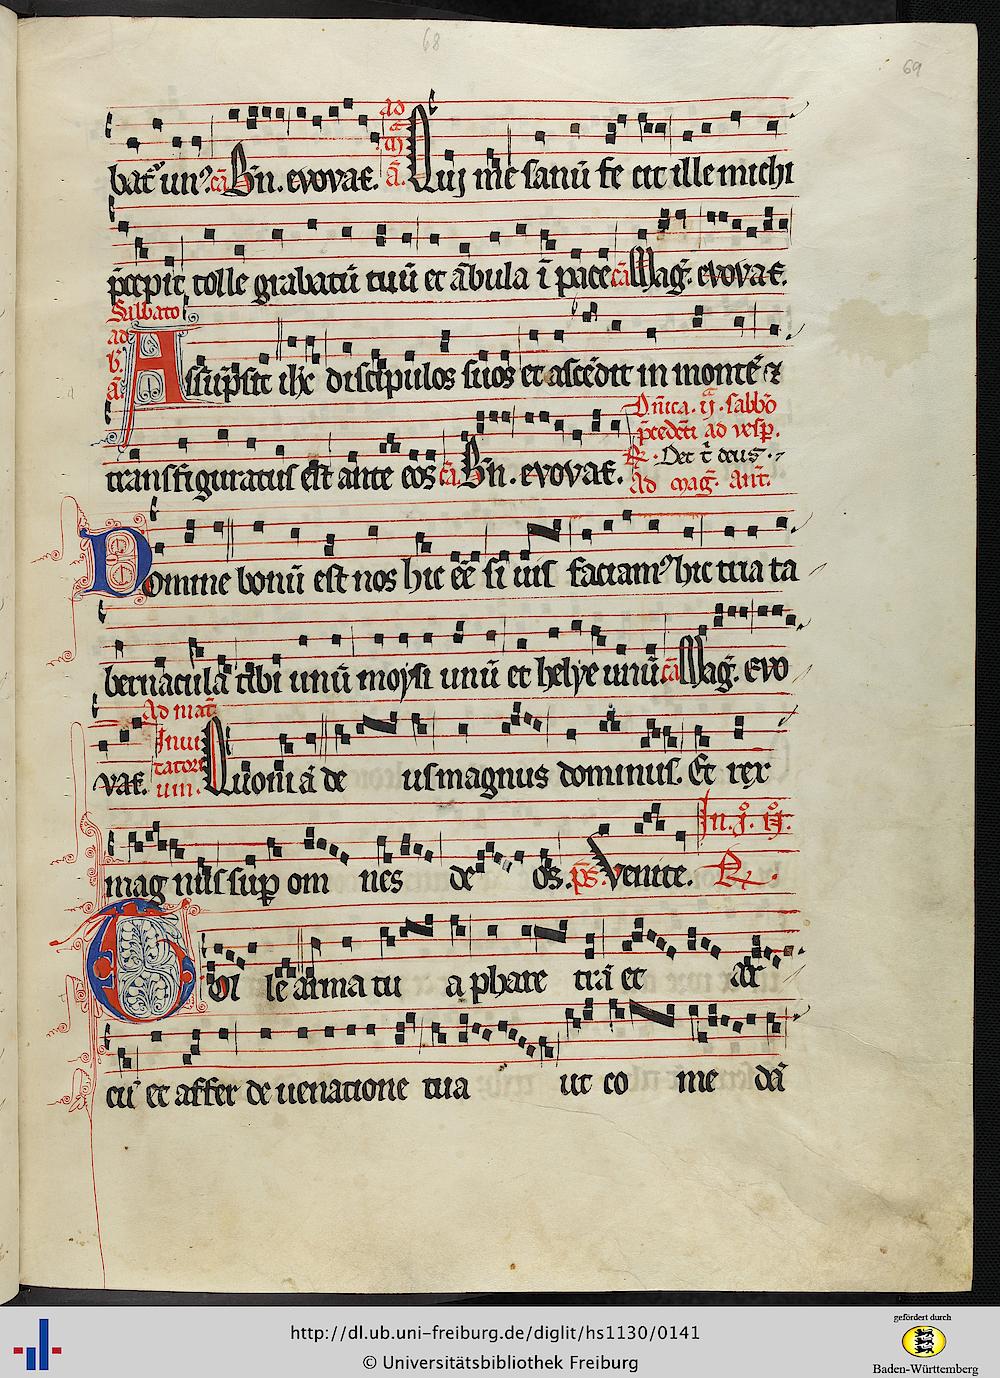 68
69
bat᷑ unꝰ. cā Bn̄. evovae. ad m a᷑. Qui me sanū fe cit ille michi
p̄cepit tolle grabatū tuū et ābula ī pace cā Mag̅. evovae.
Sabbato
ad B. ā. Assūpsit ih̄c discipulos suos et ascēdit in monte᷑ ⁊
transfiguratus est ante eos cā Bn̄. evovae.
Dn̄ica. ij. sabbō
p̄cedēti ad vesp̄.
℟. Det t̄ deus.
Ad mag̅. Ant.
Domine bonū est nos hic eē si vis faciamꝰ hic tria ta
bernacula tibi unū moysi unū et helye unū cā Mag̅. Evo
Ad mat᷑.
vae. Invi tatori um. Quoniā de us magnus dominus. Et rex
In. j. N.
magnus sup̱ om nes de os. p̄s. Venite. ℟.
Tolle arma tu a phare trā et ar
cū et affer de venatione tua ut co me dā
http://dl.ub.uni-freiburg.de/diglit/hs1130/0141
© Universitätsbibliothek Freiburg
gefördert durch
Baden-Württemberg